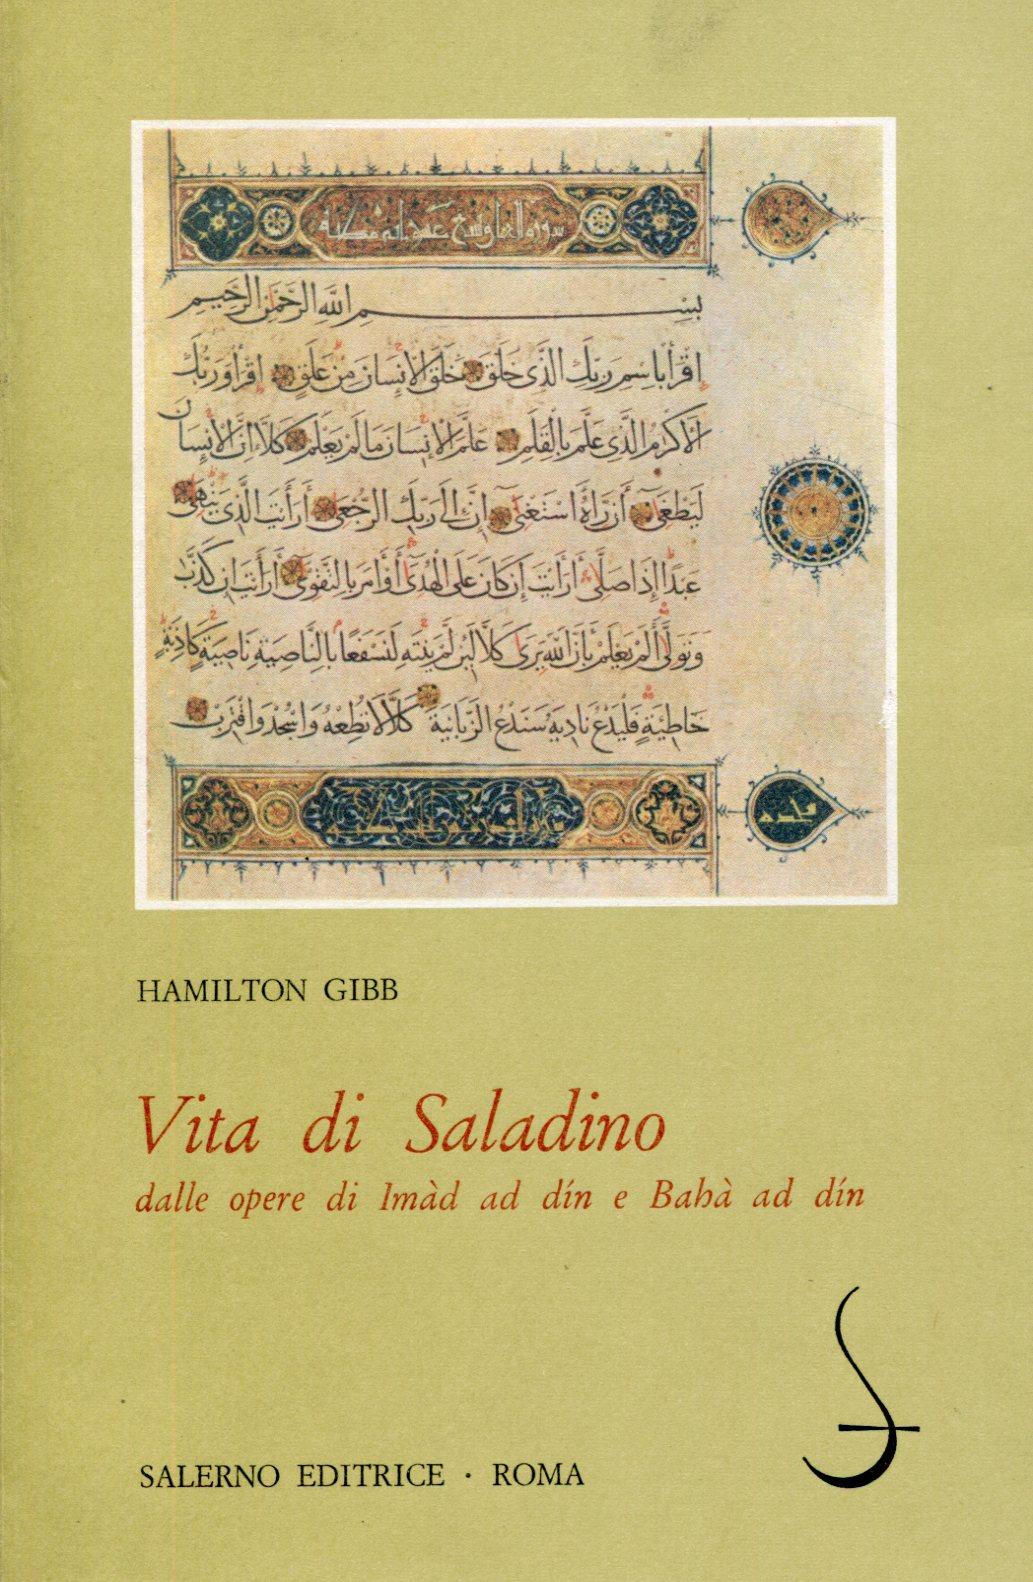 بِسْمِ اللَّهِ الرَّحْمَنِ الرَّحِيمِ
اِقْرَأْ بِاسْمِ رَبِّكَ الَّذِي خَلَقَ خَلَقَ الْإِنسَانَ مِنْ عَلَقٍ اِقْرَأْ وَرَبُّكَ
الْأَكْرَمُ الَّذِي عَلَّمَ بِالْقَلَمِ عَلَّمَ الْإِنسَانَ مَا لَمْ يَعْلَمْ كَلَّا إِنَّ الْإِنسَانَ
لَيَطْغَى أَن رَآهُ اسْتَغْنَى إِنَّ إِلَى رَبِّكَ الرُّجْعَى أَرَأَيْتَ الَّذِي يَنْهَى
عَبْدًا إِذَا صَلَّى أَرَأَيْتَ إِن كَانَ عَلَى الْهُدَى أَوْ أَمَرَ بِالتَّقْوَى أَرَأَيْتَ إِن كَذَّبَ
وَتَوَلَّى أَلَمْ يَعْلَمْ بِأَنَّ اللَّهَ يَرَى كَلَّا لَئِن لَمْ يَنتَهِ لَنَسْفَعًا بِالنَّاصِيَةِ نَاصِيَةٍ كَاذِبَةٍ
خَاطِئَةٍ فَلْيَدْعُ نَادِيَهُ سَنَدْعُ الزَّبَانِيَةَ كَلَّا لَا تُطِعْهُ وَاسْجُدْ وَاقْتَرِبْ
HAMILTON GIBB
Vita di Saladino
dalle opere di Imàd ad dín e Bahà ad dín
SALERNO EDITRICE · ROMA